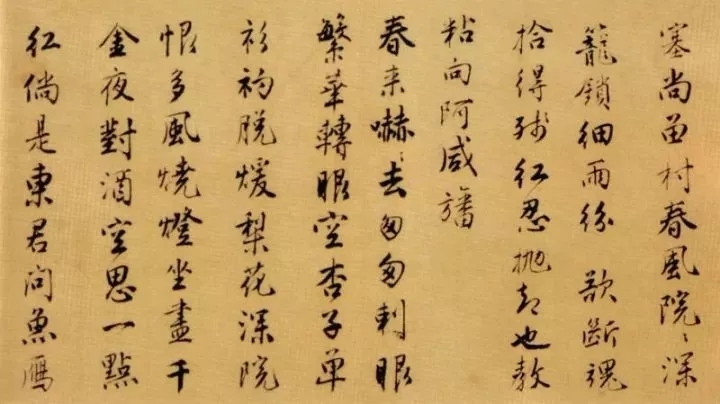 塞尚留村春風院々深
籠鎖細雨紛々欲斷魂
拾得殘紅忍拋卻也教
粘向阿咸旛
春來嚇々去匆匆刺眼
繁華轉眼空杏子單
衫初脫煖梨花深院
恨多風燒燈坐盡千
金夜對酒空思一點
紅倘是東君問魚鴈